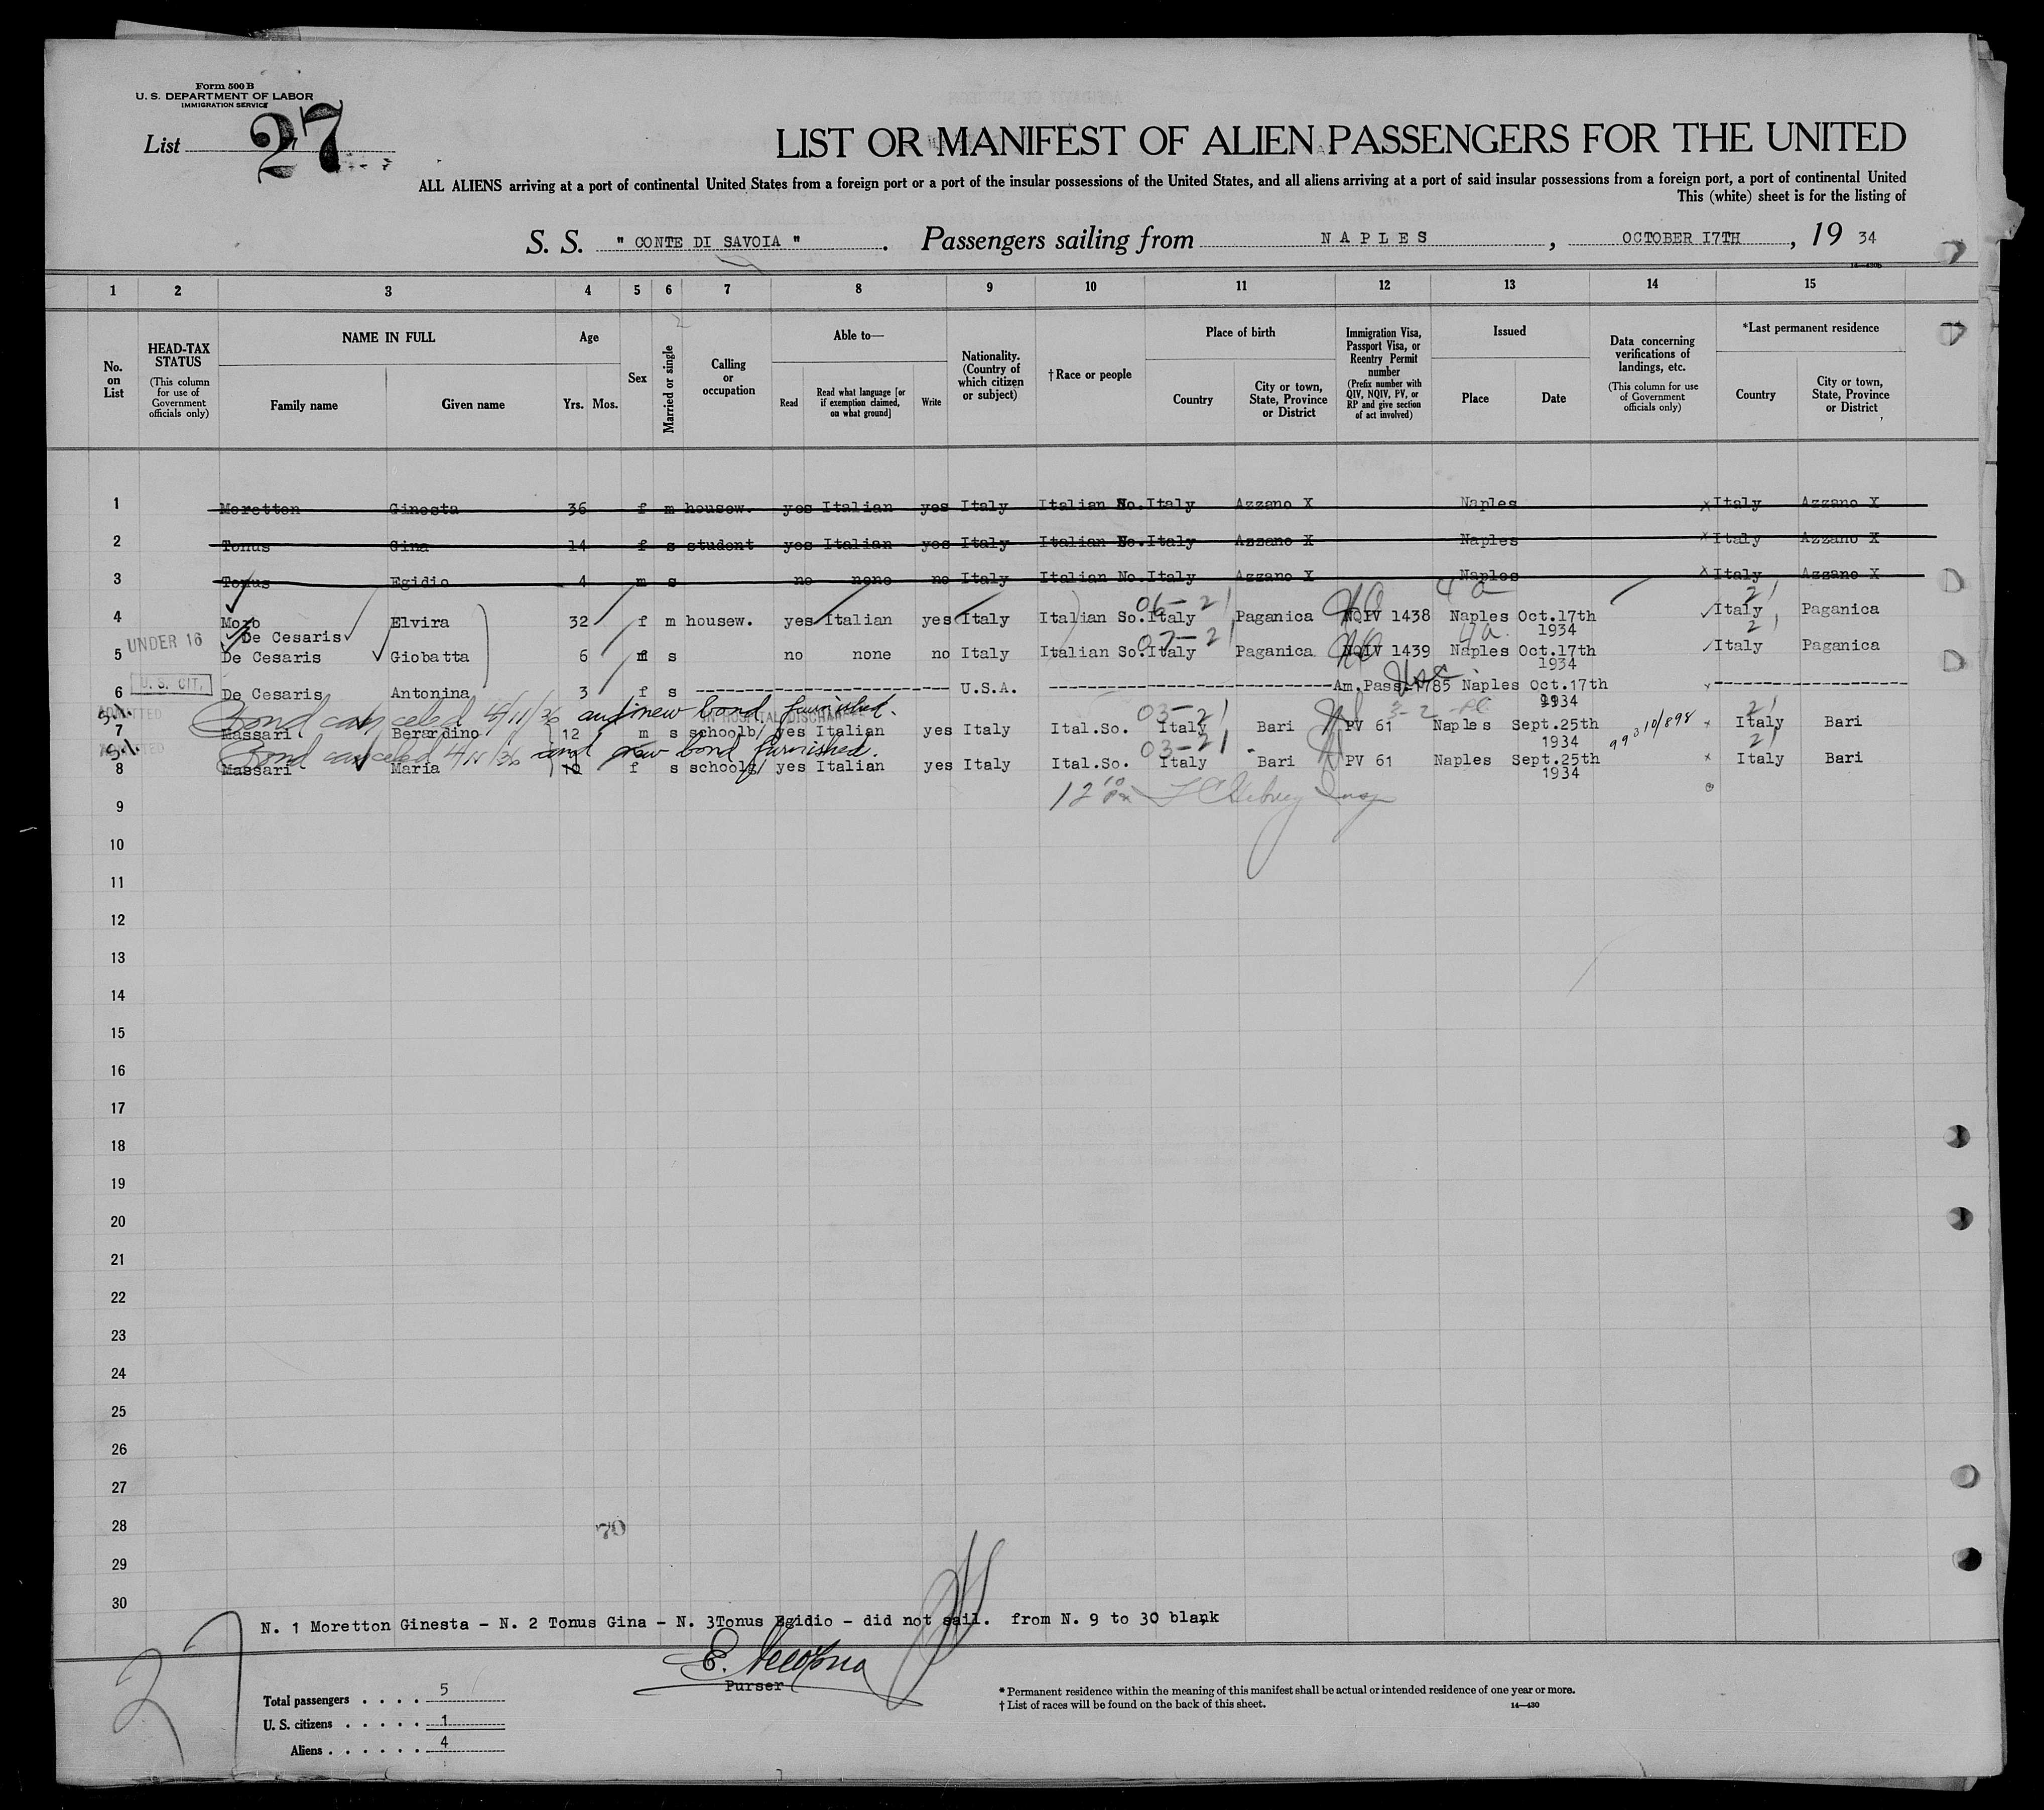 Form 500 B
U. S. DEPARTMENT OF LABOR
IMMIGRATION SERVICE
List 27
LIST OR MANIFEST OF ALIEN PASSENGERS FOR THE UNITED
ALL ALIENS arriving at a port of continental United States from a foreign port or a port of the insular possessions of the United States, and all aliens arriving at a port of said insular possessions from a foreign port, a port of continental United
This (white) sheet is for the listing of
S. S. " CONTE DI SAVOIA " . Passengers sailing from NAPLES , OCTOBER I7TH , 19 34
1 2 3 4 5 6 7 8 9 10 11 12 13 14 15
No. on List
HEAD-TAX STATUS
(This column for use of Government officials only)
NAME IN FULL
Family name Given name
Age
Yrs. Mos.
Sex
Married or single
Calling or occupation
Able to—
Read Read what language [or if exemption claimed, on what ground] Write
Nationality. (Country of which citizen or subject)
†Race or people
Place of birth
Country City or town, State, Province or District
Immigration Visa, Passport Visa, or Reentry Permit number
(Prefix number with QIV, NQIV, PV, or RP and give section of act involved)
Issued
Place Date
Data concerning verifications of landings, etc.
(This column for use of Government officials only)
*Last permanent residence
Country City or town, State, Province or District
1 Moretton Ginesta 36 f m housew. yes Italian yes Italy Italian No. Italy Azzano X Naples Italy Azzano X
2 Tonus Gina 14 f s student yes Italian yes Italy Italian No. Italy Azzano X Naples Italy Azzano X
3 Tonus Egidio 4 m s no none no Italy Italian No. Italy Azzano X Naples Italy Azzano X
06-21 4a 21
4 Moro Elvira 32 f m housew. yes Italian yes Italy Italian So. Italy Paganica NQIV 1438 Naples Oct.17th Italy Paganica
De Cesaris 1934
UNDER 16
07-21 4a. 21
5 De Cesaris Giobatta 6 m s no none no Italy Italian So. Italy Paganica NQIV 1439 Naples Oct.17th Italy Paganica
1934
U. S. CIT. USC
6 De Cesaris Antonina 3 f s U.S.A. Am.Pass.1785 Naples Oct.17th
1934
S.I. ADMITTED Bond canceled 4/11/36 and new bond furnished. IN HOSPITAL DISCHARGED 03-21 3-2 21
7 Massari Berardino 12 m s schoolb/ yes Italian yes Italy Ital.So. Italy Bari PV 61 Naples Sept.25th 993 10/898 Italy Bari
1934
S.I. ADMITTED Bond canceled 4/11/36 and new bond furnished. 03-21 21
8 Massari Maria 10 f s schoolg/ yes Italian yes Italy Ital.So. Italy Bari PV 61 Naples Sept.25th Italy Bari
1934
9
10
11
12
13
14
15
16
17
18
19
20
21
22
23
24
25
26
27
28
70
29
30
N. 1 Moretton Ginesta - N. 2 Tonus Gina - N. 3Tonus Egidio - did not sail. from N. 9 to 30 blank
27
Purser
Total passengers . . . . 5
U. S. citizens . . . . . 1
Aliens . . . . . . 4
* Permanent residence within the meaning of this manifest shall be actual or intended residence of one year or more.
† List of races will be found on the back of this sheet.
14—430